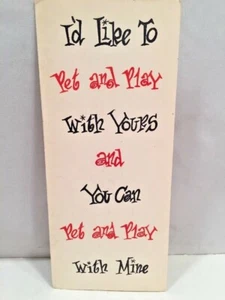 I'd Like To
Pet and Play
With Yours
and
You Can
Pet and Play
With Mine